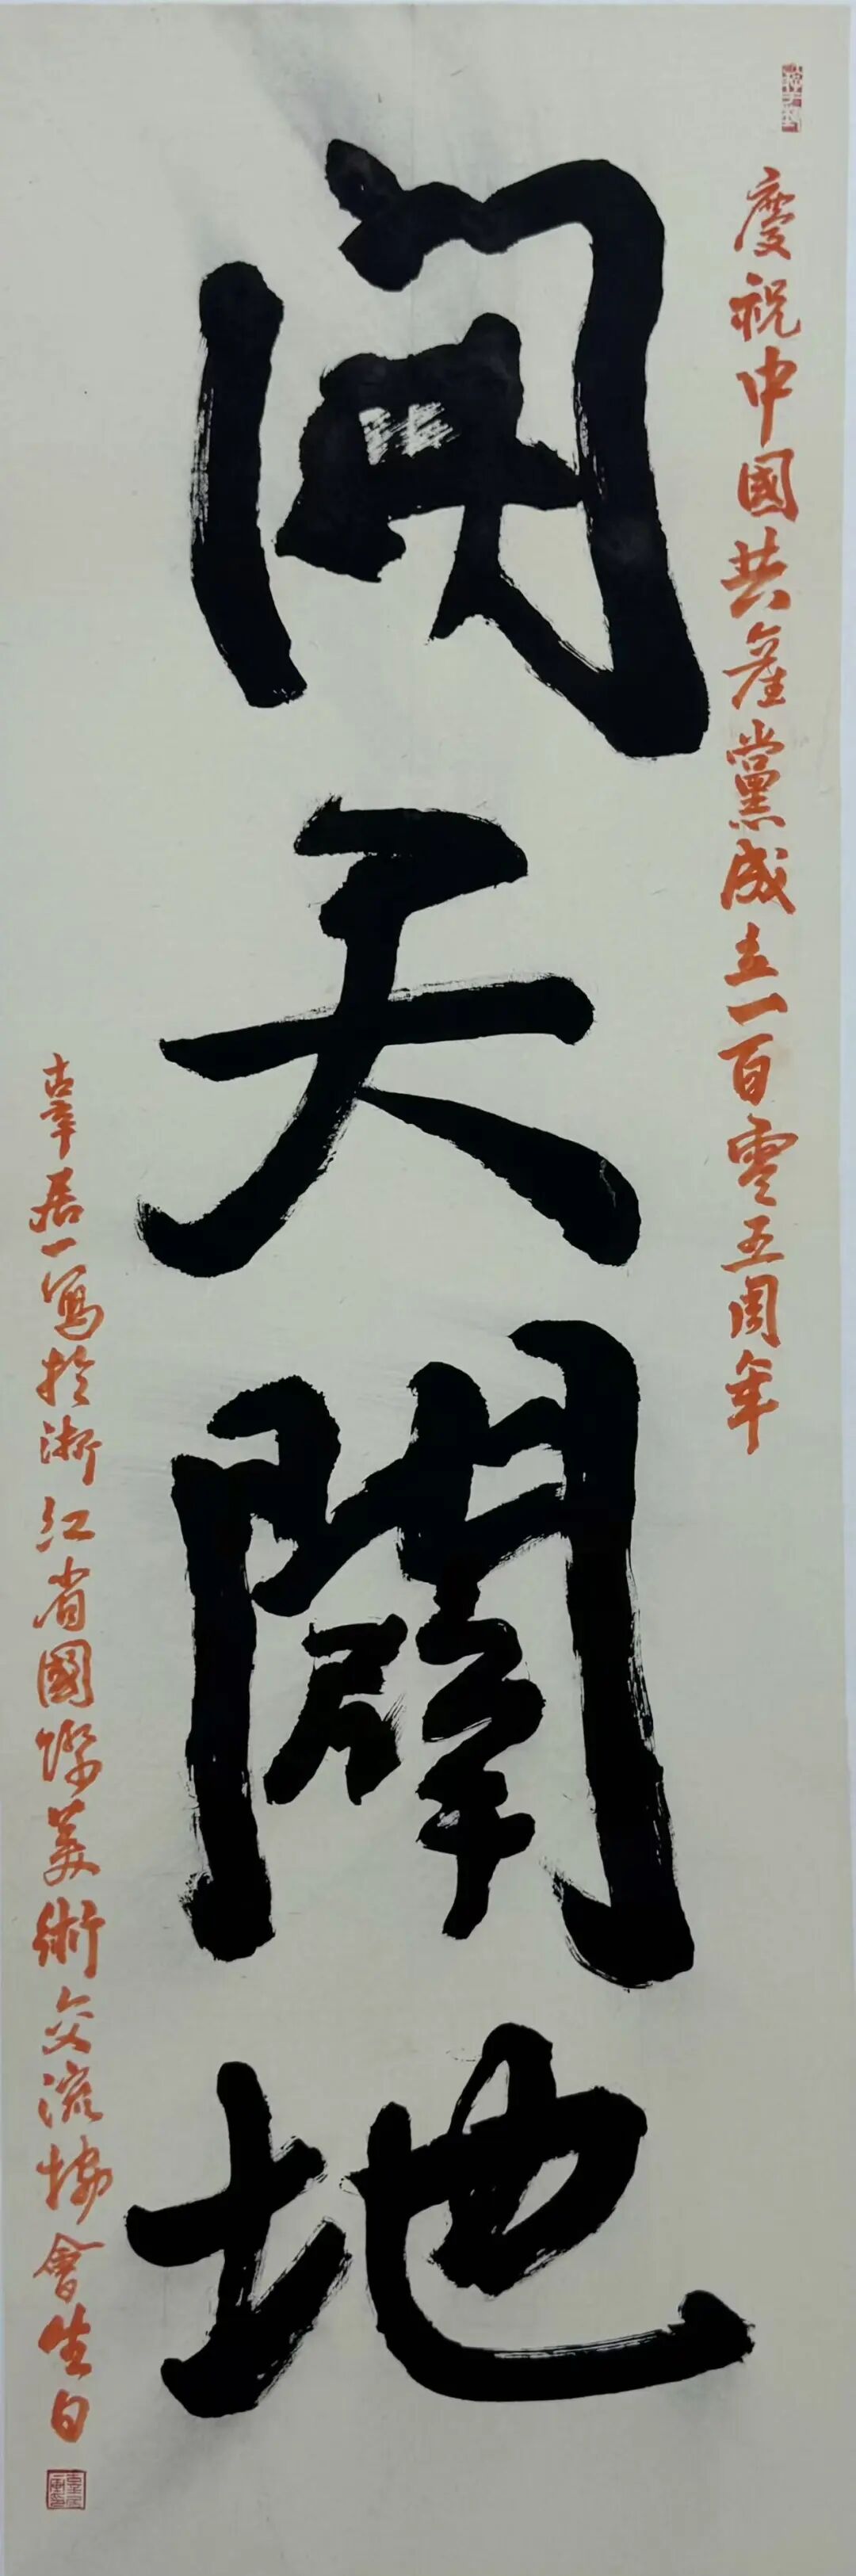 慶祝中國共產黨成立一百零五周年
開天闢地
古辜居一寫於浙江省國際美術交流協會生日